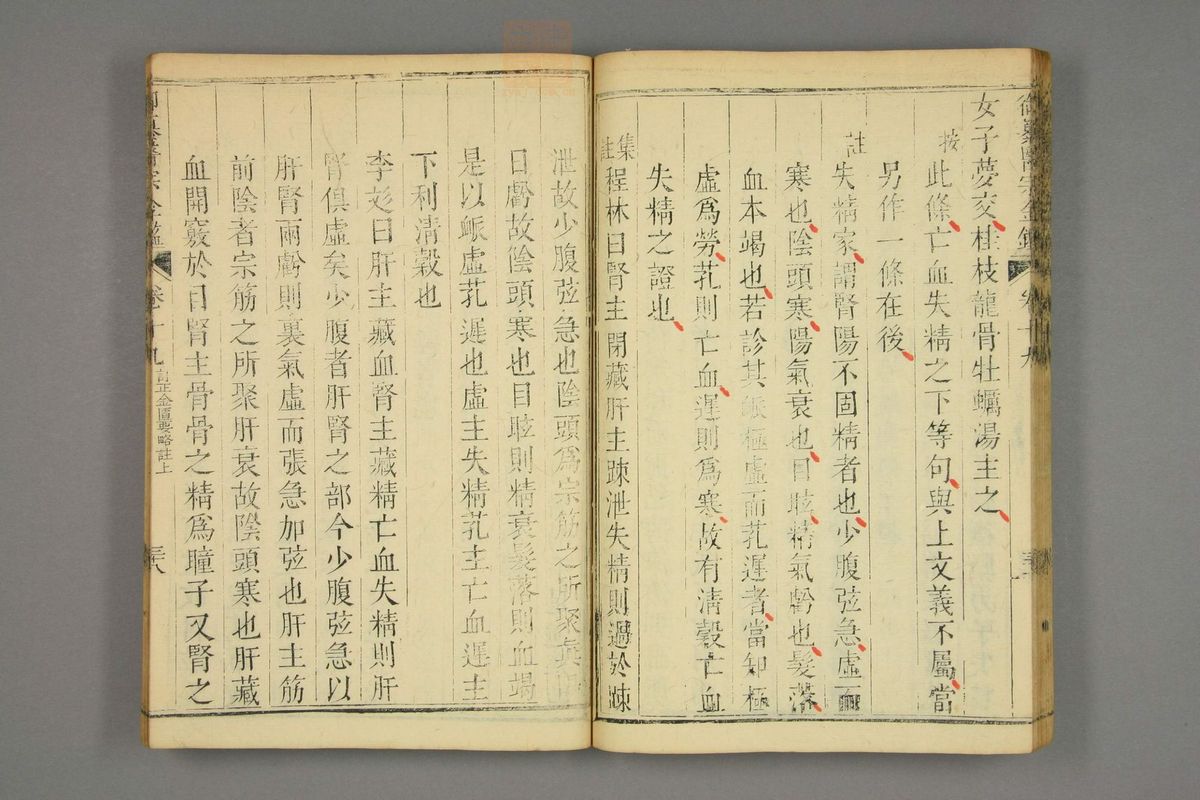 御纂醫宗金鑑 卷十九
女子夢交桂枝龍骨牡蠣湯主之
按
此條亡血失精之下等句與上文義不屬當
另作一條在後
註
失精家謂腎陽不固精者也少腹弦急虛而
寒也陰頭寒陽氣衰也目眩精氣虧也髮落
血本竭也若診其脈極虛而芤遲者當知極
虛為勞芤則亡血遲則為寒故有清穀亡血
失精之證也
集註
程林曰腎主閉藏肝主疎泄失精則過於疎
泄故少腹弦急也陰頭為宗筋之所聚真陽
日虧故陰頭寒也目眩則精衰髮落則血竭
是以脈虛芤遲也虛主失精芤主亡血遲主
下利清穀也
李彣曰肝主藏血腎主藏精亡血失精則肝
腎俱虛矣少腹者肝腎之部今少腹弦急以
肝腎兩虧則裏氣虛而張急加弦也肝主筋
前陰者宗筋之所聚肝衰故陰頭寒也肝藏
血開竅於目腎主骨骨之精為瞳子又腎之
御纂醫宗金鑑 卷十九 訂正金匱要略註上 三八